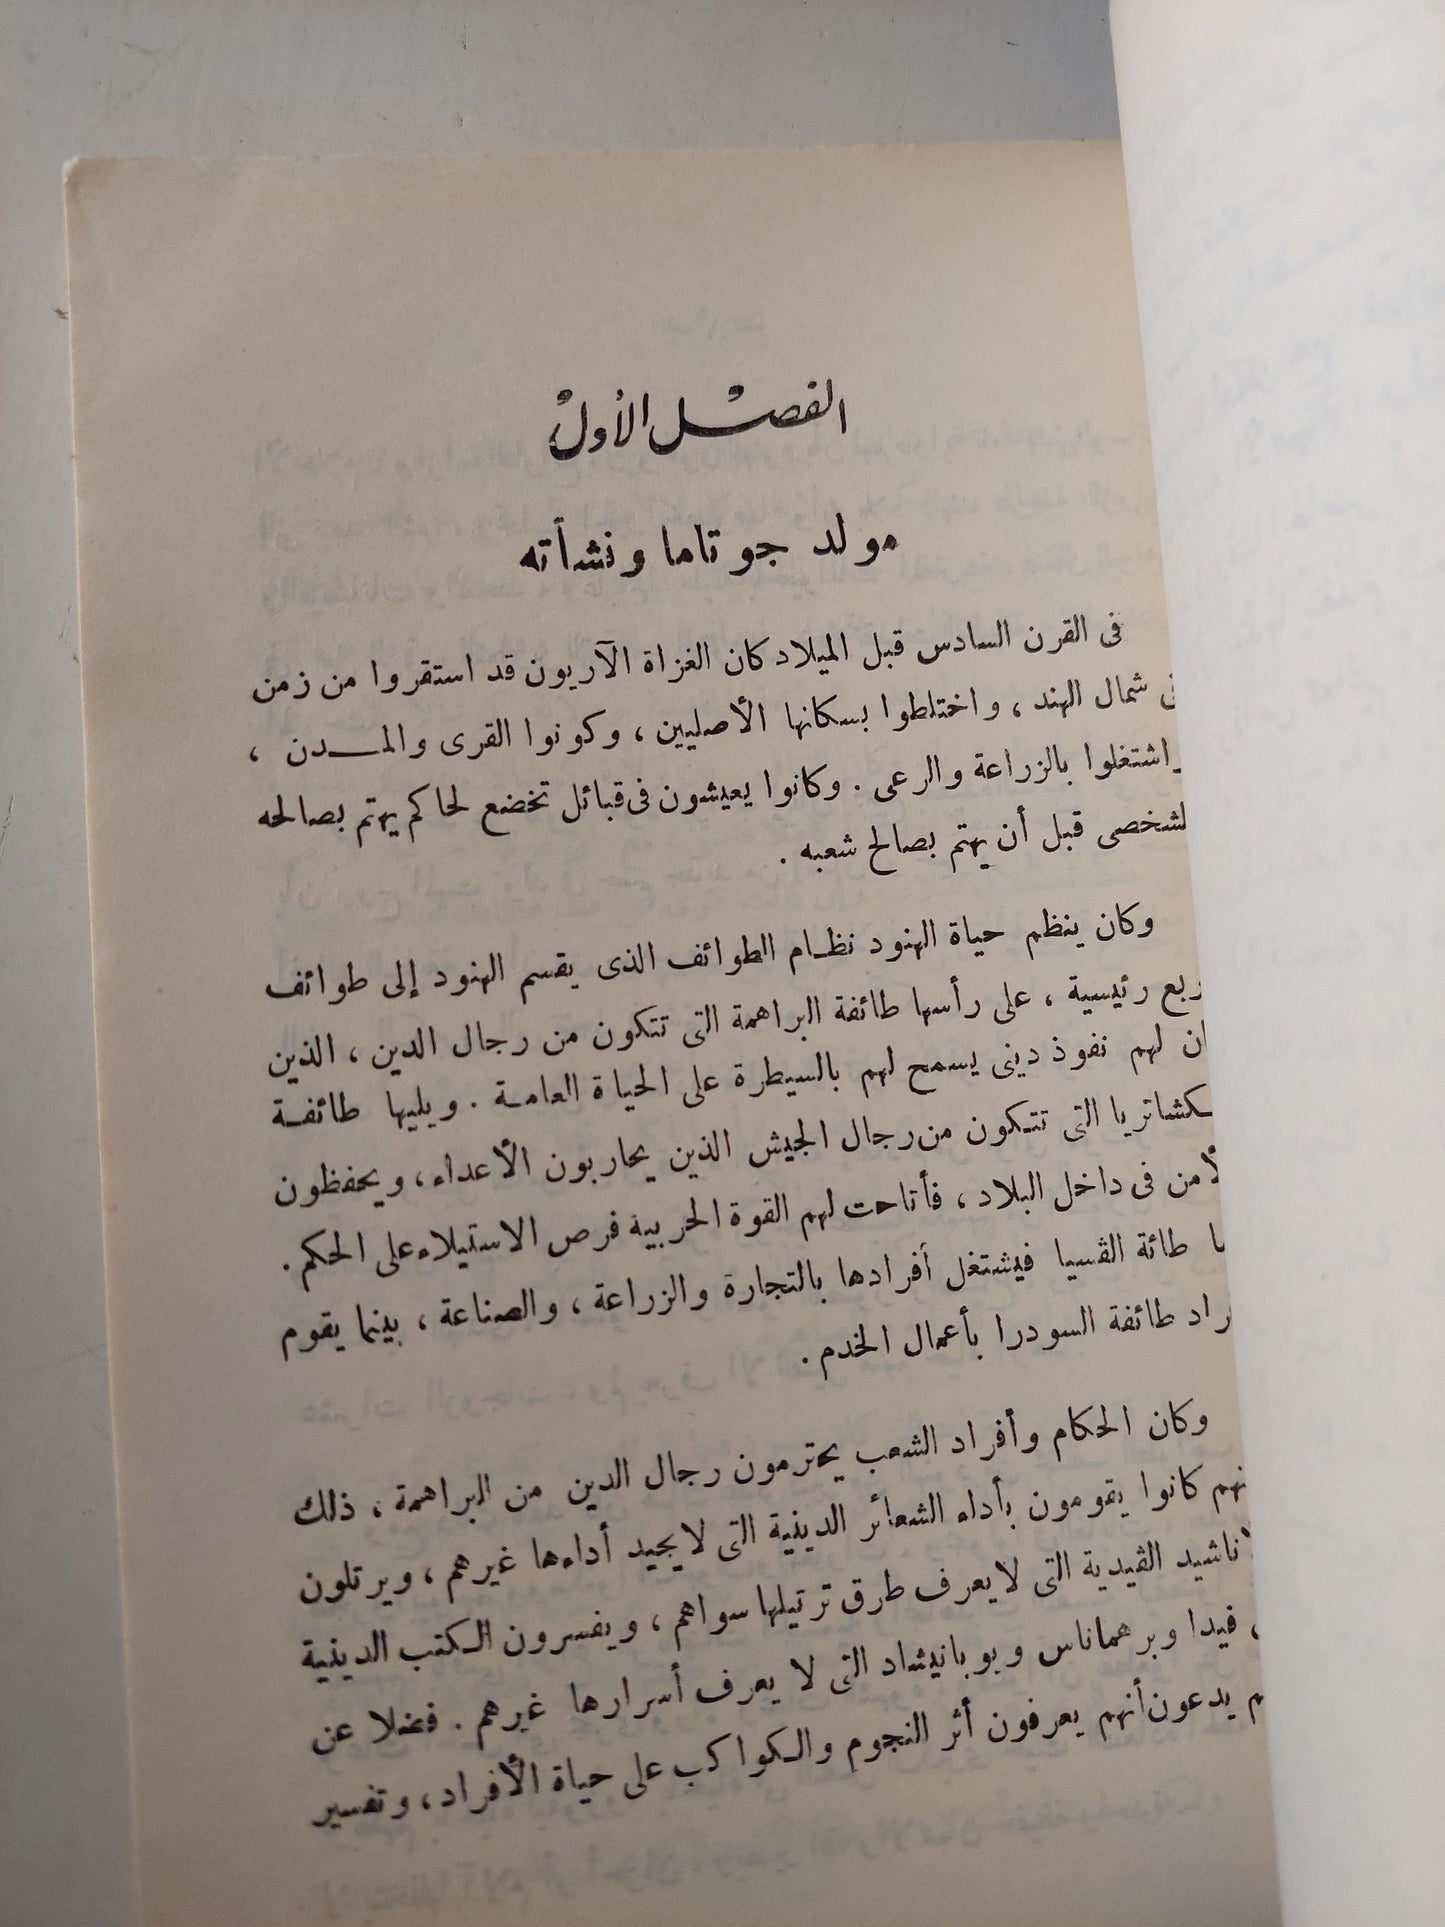 الفصل الأول
مولد جوتاما ونشأته
فى القرن السادس قبل الميلاد كان الغزاة الآريون قد استقروا من زمن
شمال الهند ، واختلطوا بسكانها الأصليين ، وكونوا القرى والمدن ،
اشتغلوا بالزراعة والرعى . وكانوا يعيشون فى قبائل تخضع لحاكم يهتم بصالحه
لشخصى قبل أن يهتم بصالح شعبه .
وكان ينظم حياة الهنود نظام الطوائف الذى يقسم الهنود إلى طوائف
ربع رئيسية ، على رأسها طائفة البراهمة التى تتكون من رجال الدين ، الذين
ان لهم نفوذ دينى يسمح لهم بالسيطرة على الحياة العامة . ويليها طائفة
كشاتريا التى تتكون من رجال الجيش الذين يحاربون الأعداء ، ويحفظون
لأمن فى داخل البلاد ، فأتاحت لهم القوة الحربية فرص الاستيلاء على الحكم .
ا طائة الڤسيا فيشتغل أفرادها بالتجارة والزراعة ، والصناعة ، بينما يقوم
راد طائفة السودرا بأعمال الخدم .
وكان الحكام وأفراد الشعب يحترمون رجال الدين من البراهمة ، ذلك
نهم كانوا يقومون بأداء الشعائر الدينية التى لا يجيد أداءها غيرهم ، ويرتلون
لأناشيد الڤيدية التى لا يعرف طرق ترتيلها سواهم ، ويفسرون الكتب الدينية
، فيدا وبرهماناس ويوبانيشاد التى لا يعرف أسرارها غيرهم . فضلا عن
م يدعون أنهم يعرفون أثر النجوم والكواكب على حياة الأفراد ، وتفسير